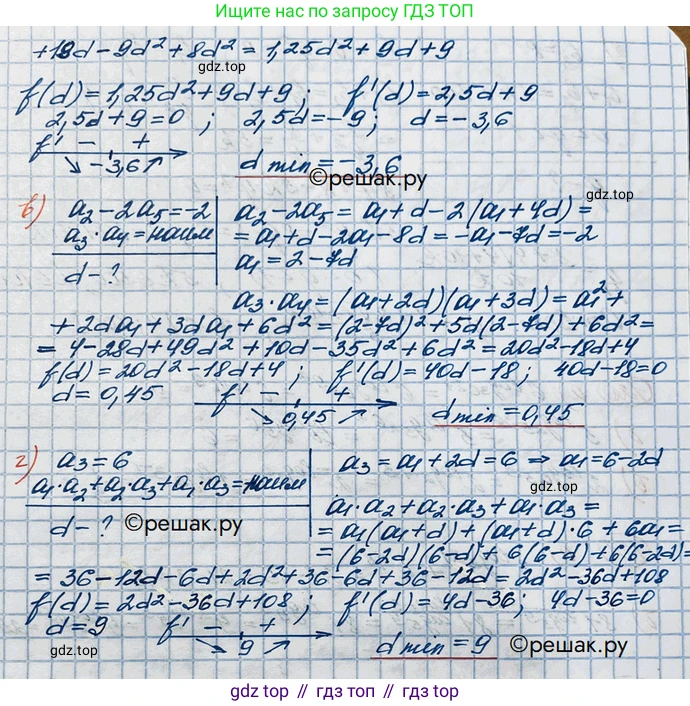 Ищите нас по запросу ГДЗ ТОП
+18d-9d²+8d² = 1,25d²+9d+9
гдз.top
f(d) = 1,25d²+9d+9; f'(d) = 2,5d+9
2,5d+9=0; 2,5d=-9; d=-3,6
f' - +
-3,6
d min = -3,6
©решак.ру
гдз.top
в) a₂-2a₅=-2
a₃·a₄=наим
d-?
a₂-2a₅ = a₁+d-2(a₁+4d) =
= a₁+d-2a₁-8d = -a₁-7d = -2
a₁ = 2-7d
a₃·a₄ = (a₁+2d)(a₁+3d) = a₁²+
+2da₁+3da₁+6d² = (2-7d)²+5d(2-7d)+6d² =
= 4-28d+49d²+10d-35d²+6d² = 20d²-18d+4
f(d) = 20d²-18d+4; f'(d) = 40d-18; 40d-18=0
d = 0,45
f' - +
0,45
d min = 0,45
г) a₃=6
a₁·a₂+a₂·a₃+a₁·a₃=наим
d-?
©решак.ру
a₃ = a₁+2d = 6 ⇒ a₁=6-2d
гдз.top
a₁·a₂+a₂·a₃+a₁·a₃ =
= a₁(a₁+d)+(a₁+d)·6+6a₁ =
= (6-2d)(6-d)+6(6-d)+6(6-2d) =
= 36-12d-6d+2d²+36-6d+36-12d = 2d²-36d+108
гдз.top
f(d) = 2d²-36d+108; f'(d) = 4d-36; 4d-36=0
d=9
f' - +
9
d min = 9
©решак.ру
gdz.top // гдз.top // гдз.top